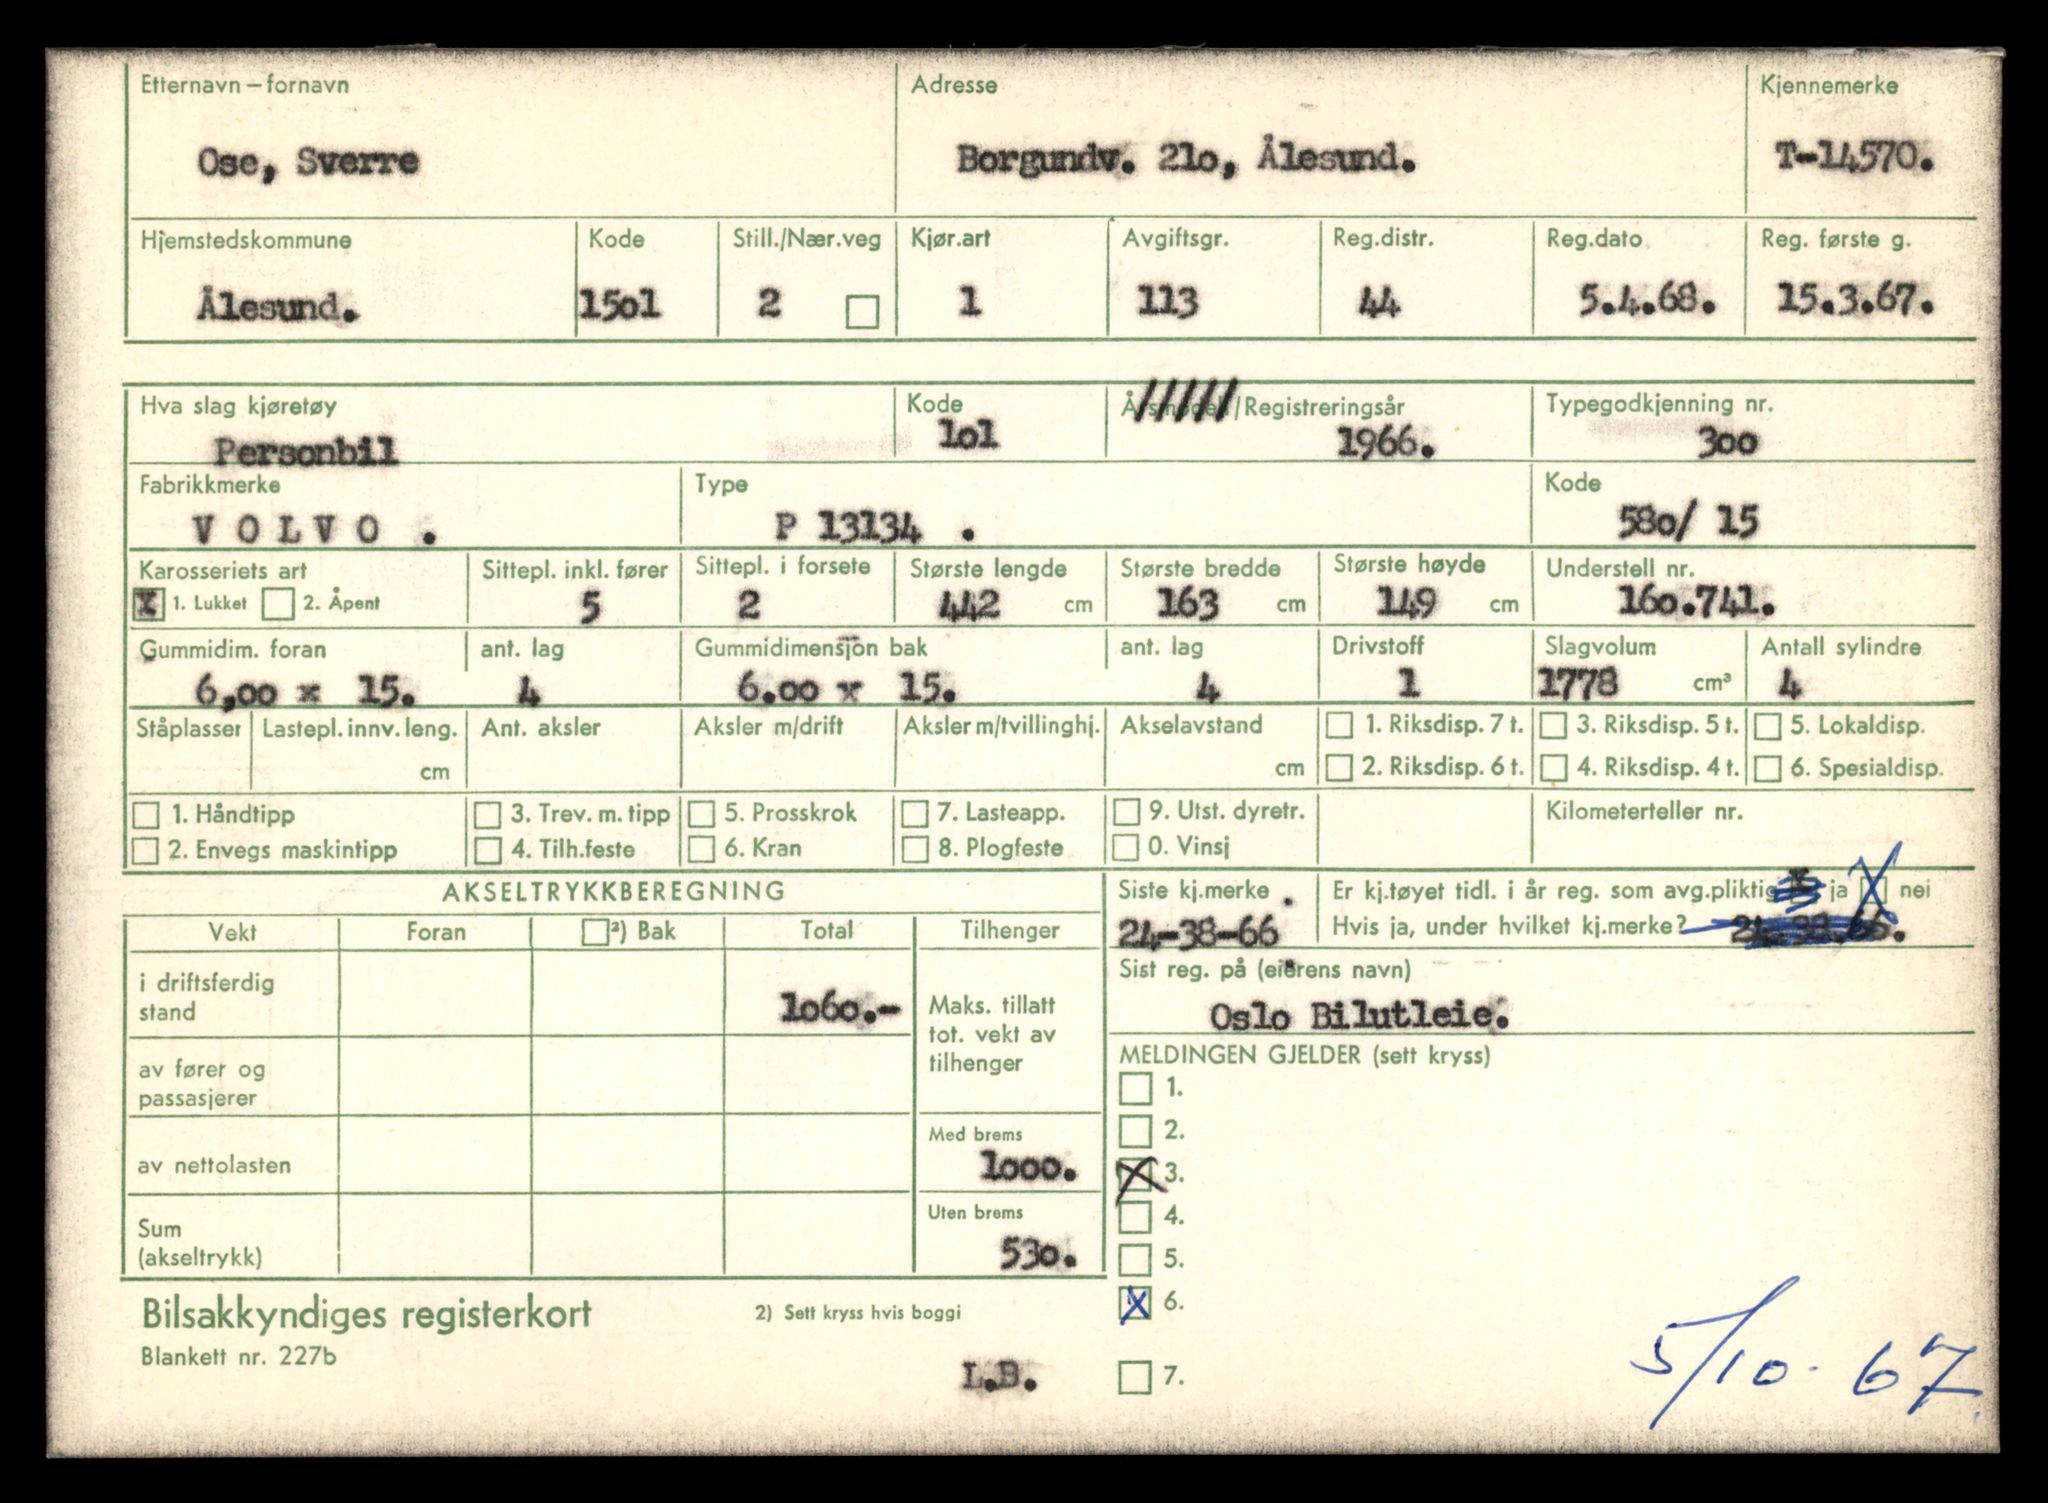 Etternavn – fornavn Adresse Kjennemerke
Ose, Sverre Borgundv. 21o, Ålesund. T-14570.
Hjemstedskommune Kode Still./Nær.veg Kjør.art Avgiftsgr. Reg.distr. Reg.dato Reg. første g.
Ålesund. 15o1 2 1 113 44 5.4.68. 15.3.67.
Hva slag kjøretøy Kode Årsmodell/Registreringsår Typegodkjenning nr.
Personbil 1o1 1966. 3oo
Fabrikkmerke Type Kode
V O L V O . P 13134 . 58o/ 15
Karosseriets art Sittepl. inkl. fører Sittepl. i forsete Største lengde Største bredde Største høyde Understell nr.
X 1. Lukket 2. Åpent 5 2 442 cm 163 cm 149 cm 16o.741.
Gummidim. foran ant. lag Gummidimensjon bak ant. lag Drivstoff Slagvolum Antall sylindre
6,oo x 15. 4 6.oo x 15. 4 1 1778 cm³ 4
Ståplasser Lastepl. innv. leng. Ant. aksler Aksler m/drift Aksler m/tvillinghj. Akselavstand 1. Riksdisp. 7 t. 3. Riksdisp. 5 t. 5. Lokaldisp.
cm cm 2. Riksdisp. 6 t. 4. Riksdisp. 4 t. 6. Spesialdisp.
1. Håndtipp 3. Trev. m. tipp 5. Prosskrok 7. Lasteapp. 9. Utst. dyretr. Kilometerteller nr.
2. Envegs maskintipp 4. Tilh.feste 6. Kran 8. Plogfeste 0. Vinsj
AKSELTRYKKBEREGNING Siste kj.merke . Er kj.tøyet tidl. i år reg. som avg.pliktig ja X nei
Vekt Foran ²) Bak Total Tilhenger 24-38-66 Hvis ja, under hvilket kj.merke? 24-38.66.
i driftsferdig stand 1o6o.- Maks. tillatt tot. vekt av tilhenger Sist reg. på (eierens navn)
Oslo Bilutleie.
av fører og passasjerer MELDINGEN GJELDER (sett kryss)
1.
2.
av nettolasten Med brems 1ooo. X 3.
4.
Sum (akseltrykk) Uten brems 53o. 5.
Bilsakkyndiges registerkort 2) Sett kryss hvis boggi X 6.
Blankett nr. 227b L.B. 7. 5/10-67